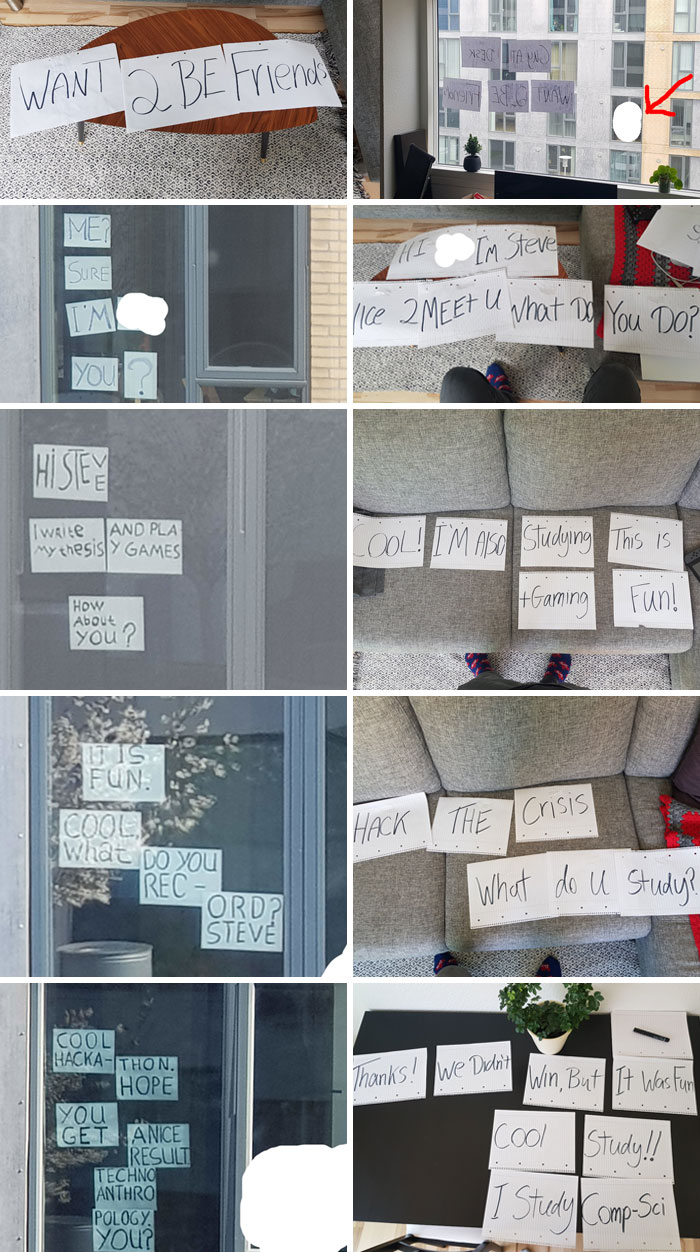 WANT 2 BE Friends
GUY AT DESK
WANT 2 BE Friends
ME?
SURE
I'M
YOU ?
HI Im Steve
NICE 2 MEET U What Do You Do?
HI STEVE
I write AND PLA
My thesis Y GAMES
HOW
About
YOU?
COOL! I'M ALSO Studying This is
+Gaming Fun!
IT IS
FUN.
COOL,
what
DO YOU
REC-
ORD?
STEVE
HACK THE Crisis
What do U Study?
COOL
HACKA-
THON.
HOPE
YOU
GET
A NICE
RESULT
TECHNO
ANTHRO
POLOGY.
YOU?
Thanks! We Didn't Win, But It Was Fun
COOL Study!!
I Study Comp-Sci